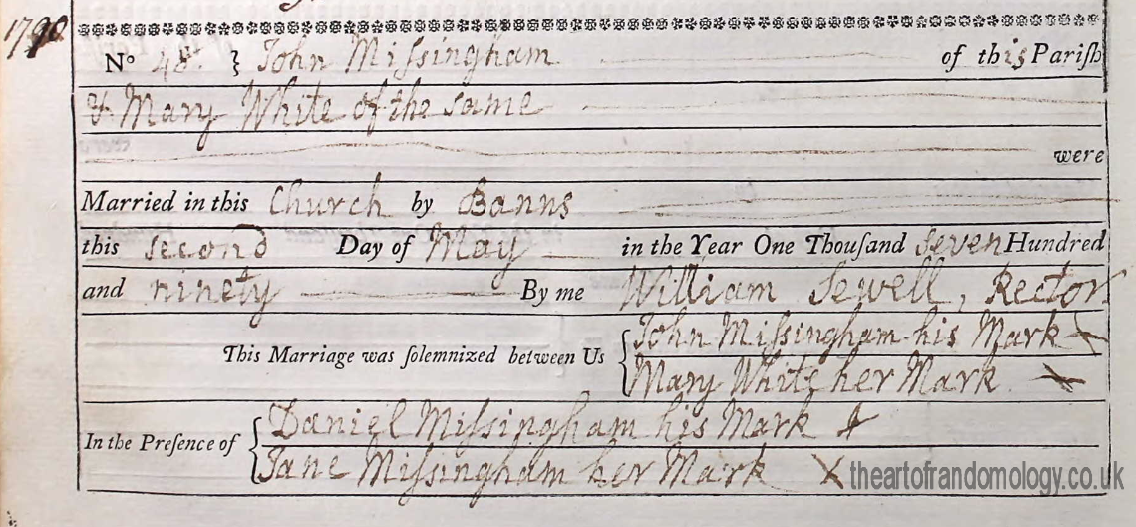 1790
No 48. } John Miſsingham of this Pariſh
& Mary White of the same
were
Married in this Church by Banns
this second Day of May in the Year One Thouſand seven Hundred
and ninety By me William Sewell, Rector
This Marriage was ſolemnized between Us { John Miſsingham his Mark
Mary White her Mark X
In the Preſence of { Daniel Miſsingham his Mark
Jane Miſsingham her Mark X
theartofrandomology.co.uk